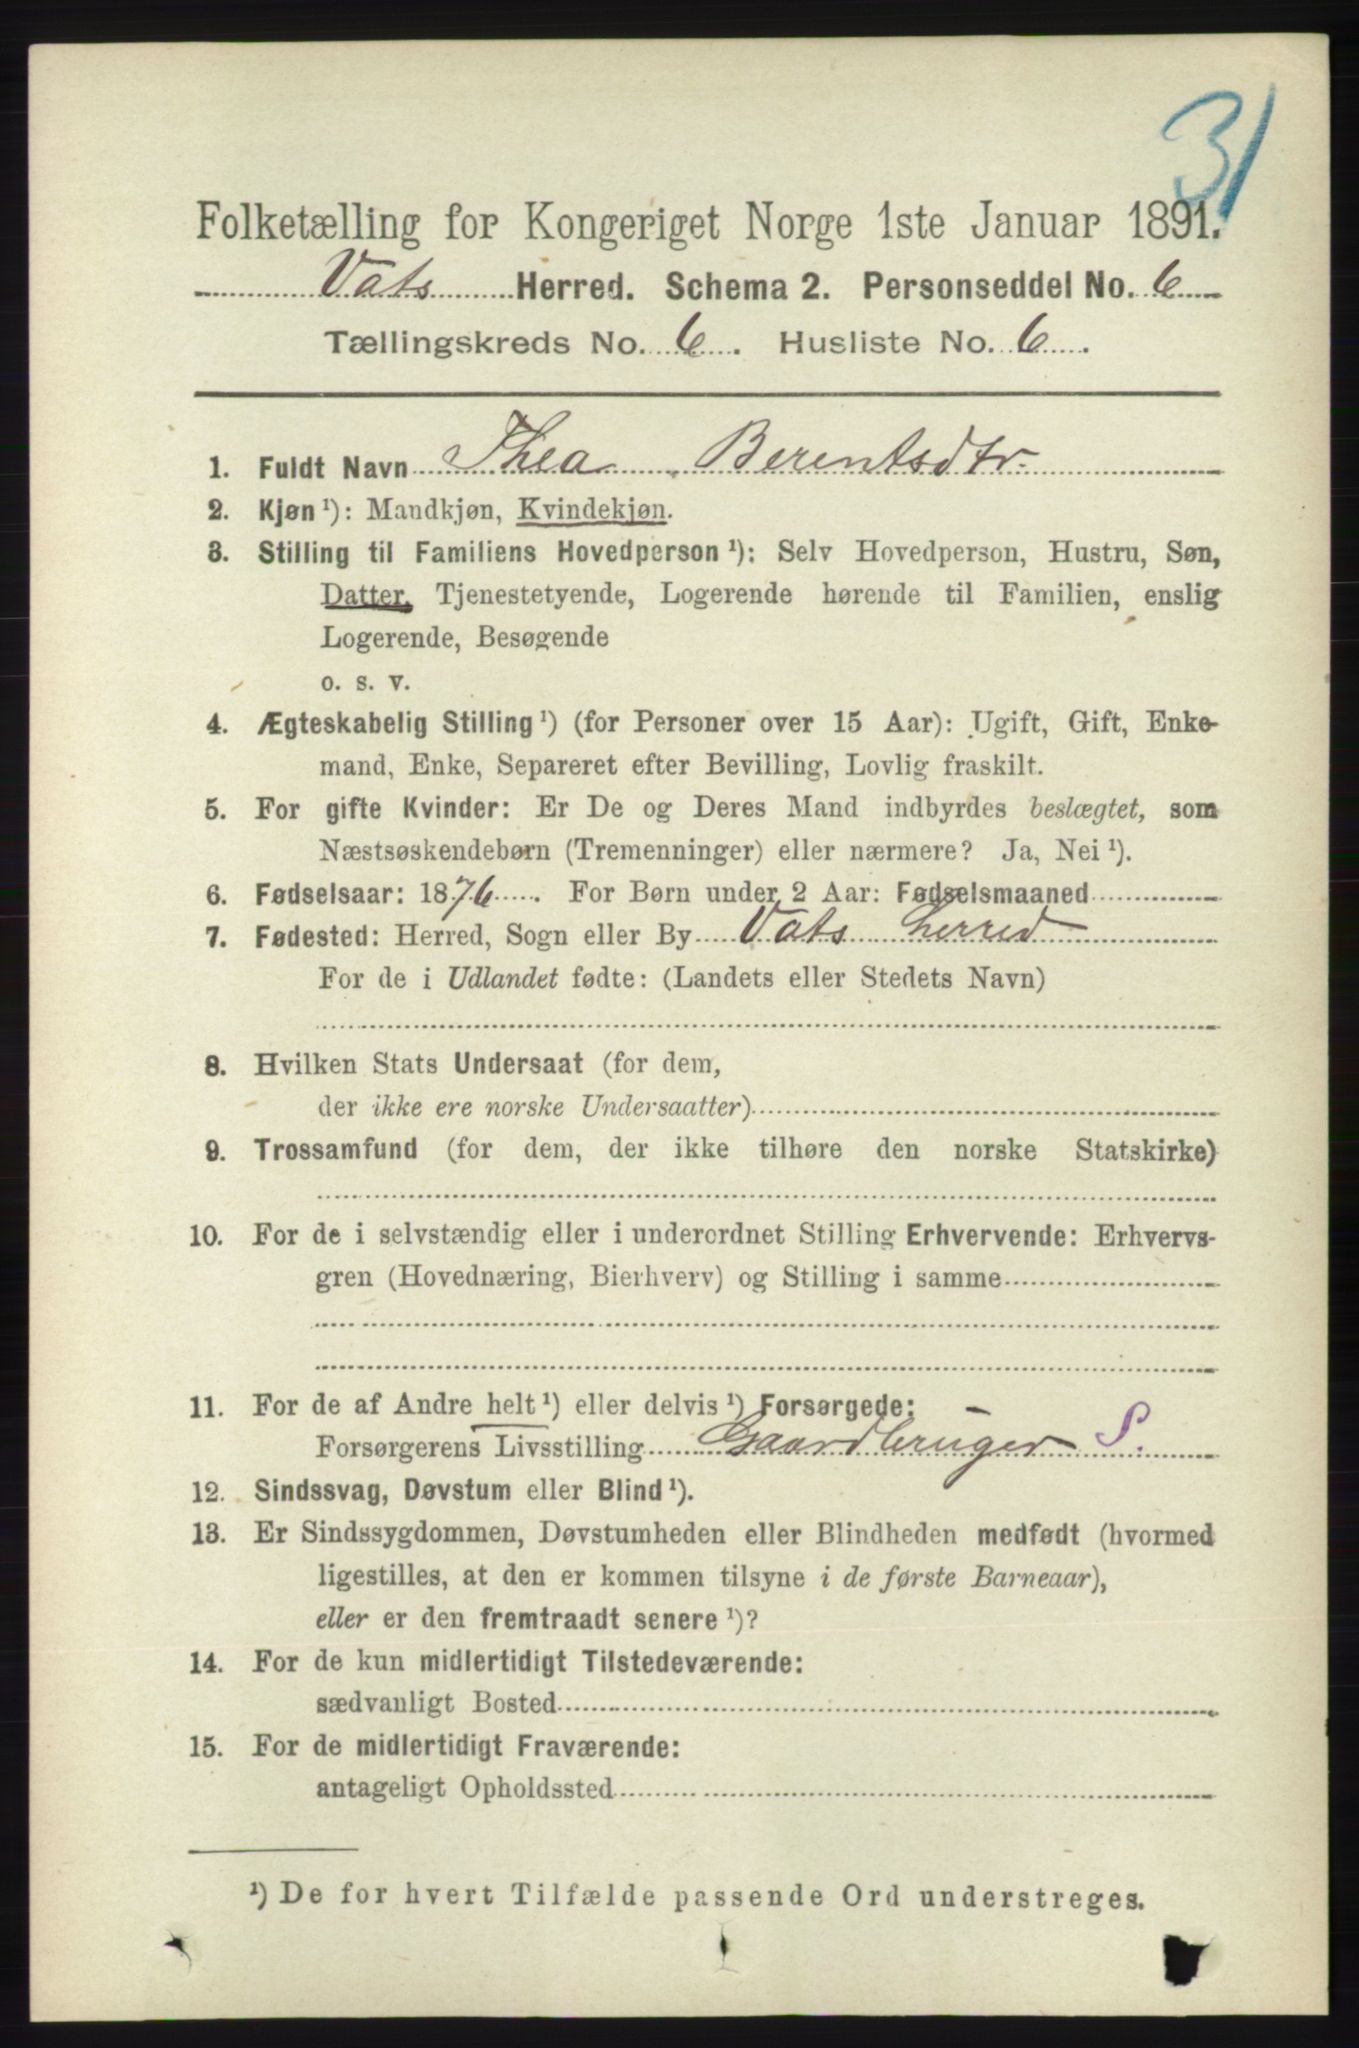 31
Folketælling for Kongeriget Norge 1ste Januar 1891.
Vats Herred. Schema 2. Personseddel No. 6
Tællingskreds No. 6. Husliste No. 6.
1. Fuldt Navn Thea Berentsdtr.
2. Kjøn¹): Mandkjøn, Kvindekjøn.
3. Stilling til Familiens Hovedperson¹): Selv Hovedperson, Hustru, Søn,
Datter, Tjenestetyende, Logerende hørende til Familien, enslig
Logerende, Besøgende
o. s. v.
4. Ægteskabelig Stilling¹) (for Personer over 15 Aar): Ugift, Gift, Enke-
mand, Enke, Separeret efter Bevilling, Lovlig fraskilt.
5. For gifte Kvinder: Er De og Deres Mand indbyrdes beslægtet, som
Næstsøskendebørn (Tremenninger) eller nærmere? Ja, Nei¹).
6. Fødselsaar: 1876. For Børn under 2 Aar: Fødselsmaaned
7. Fødested: Herred, Sogn eller By Vats herred
For de i Udlandet fødte: (Landets eller Stedets Navn)
8. Hvilken Stats Undersaat (for dem,
der ikke ere norske Undersaatter)
9. Trossamfund (for dem, der ikke tilhøre den norske Statskirke)
10. For de i selvstændig eller i underordnet Stilling Erhvervende: Erhvervs-
gren (Hovednæring, Bierhverv) og Stilling i samme
11. For de af Andre helt¹) eller delvis¹) Forsørgede:
Forsørgerens Livsstilling Gaardbruger S.
12. Sindssvag, Døvstum eller Blind¹).
13. Er Sindssygdommen, Døvstumheden eller Blindheden medfødt (hvormed
ligestilles, at den er kommen tilsyne i de første Barneaar),
eller er den fremtraadt senere¹)?
14. For de kun midlertidigt Tilstedeværende:
sædvanligt Bosted
15. For de midlertidigt Fraværende:
antageligt Opholdssted
¹) De for hvert Tilfælde passende Ord understreges.